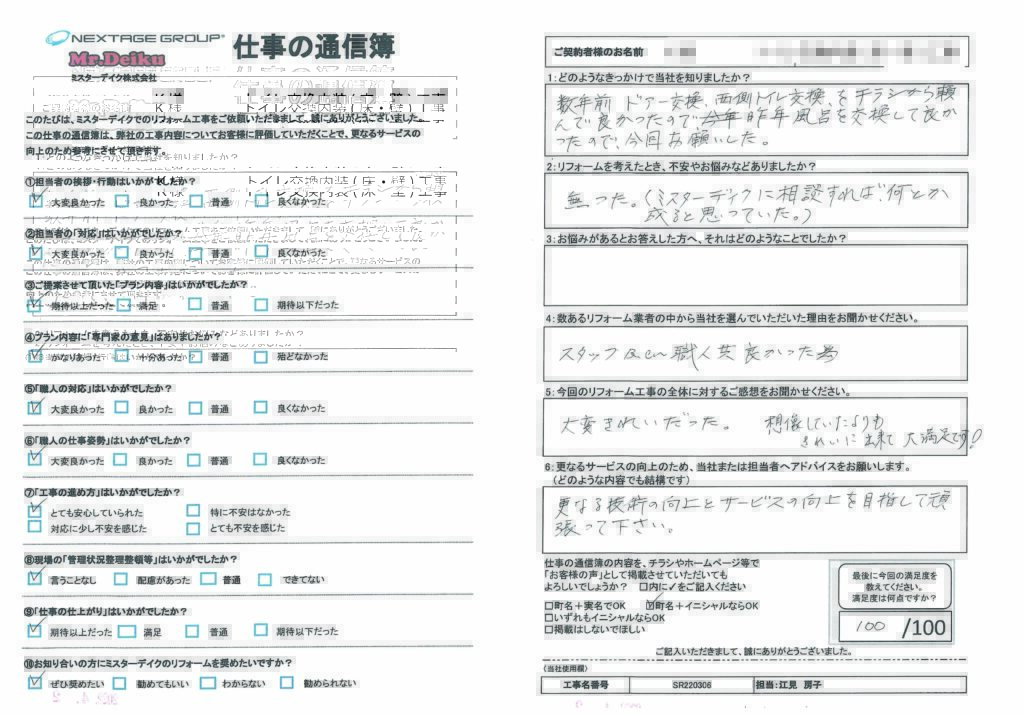 NEXTAGE GROUP
Mr.Deiku
ミスターデイク株式会社
仕事の通信簿
K様
トイレ交換内装(床・壁)工事
このたびは、ミスターデイクでのリフォーム工事をご依頼いただきまして、誠にありがとうございました。
この仕事の通信簿は、弊社の工事内容についてお客様に評価していただくことで、更なるサービスの
向上のため参考にさせて頂きます。
①担当者の挨拶・行動はいかがでしたか?
大変良かった 良かった 普通 良くなかった
②担当者の「対応」はいかがでしたか?
大変良かった 良かった 普通 良くなかった
③ご提案させて頂いた「プラン内容」はいかがですか?
期待以上だった 満足 普通 期待以下だった
④プラン内容に「専門家の意見」はありましたか?
かなりあった 十分あった 普通 殆どなかった
⑤「職人の対応」はいかがでしたか?
大変良かった 良かった 普通 良くなかった
⑥「職人の仕事姿勢」はいかがでしたか?
大変良かった 良かった 普通 良くなかった
⑦「工事の進め方」はいかがでしたか?
とても安心していられた 特に不安はなかった
対応に少し不安を感じた とても不安を感じた
⑧現場の「管理状況整理整頓等」はいかがでしたか?
言うことなし 配慮があった 普通 できてない
⑨「仕事の仕上がり」はいかがでしたか?
期待以上だった 満足 普通 期待以下だった
⑩お知り合いの方にミスターデイクのリフォームを奨めたいですか?
ぜひ奨めたい 勧めてもいい わからない 勧められない
ご契約者様のお名前
1:どのようなきっかけで当社を知りましたか?
数年前 ドアー交換、西側トイレ交換、をチラシから頼
んで良かったので、昨年風呂を交換して良か
ったので、今回お願いした。
2:リフォームを考えたとき、不安やお悩みなどありましたか?
無かった。(ミスターデイクに相談すれば、何とか
成ると思っていた。)
3:お悩みがあるとお答えした方へ、それはどのようなことでしたか?
4:数あるリフォーム業者の中から当社を選んでいただいた理由をお聞かせください。
スタッフ 職人共良かった為
5:今回のリフォーム工事の全体に対するご感想をお聞かせください。
大変きれいだった。 想像していたよりも
きれいに出来て大満足です!
6:更なるサービスの向上のため、当社または担当者へアドバイスをお願いします。
(どのような内容でも結構です)
更なる技術の向上とサービスの向上を目指して頑
張って下さい。
仕事の通信簿の内容を、チラシやホームページ等で
「お客様の声」として掲載させていただいても
よろしいでしょうか? □内に✓をご記入ください
□町名+実名でOK ☑町名+イニシャルならOK
□いずれもイニシャルならOK
□掲載はしないでほしい
最後に今回の満足度を
教えてください。
満足度は何点ですか?
100 /100
ご記入いただきまして、誠にありがとうございました。
(当社使用欄)
工事名番号 SR220306 担当:江見 房子